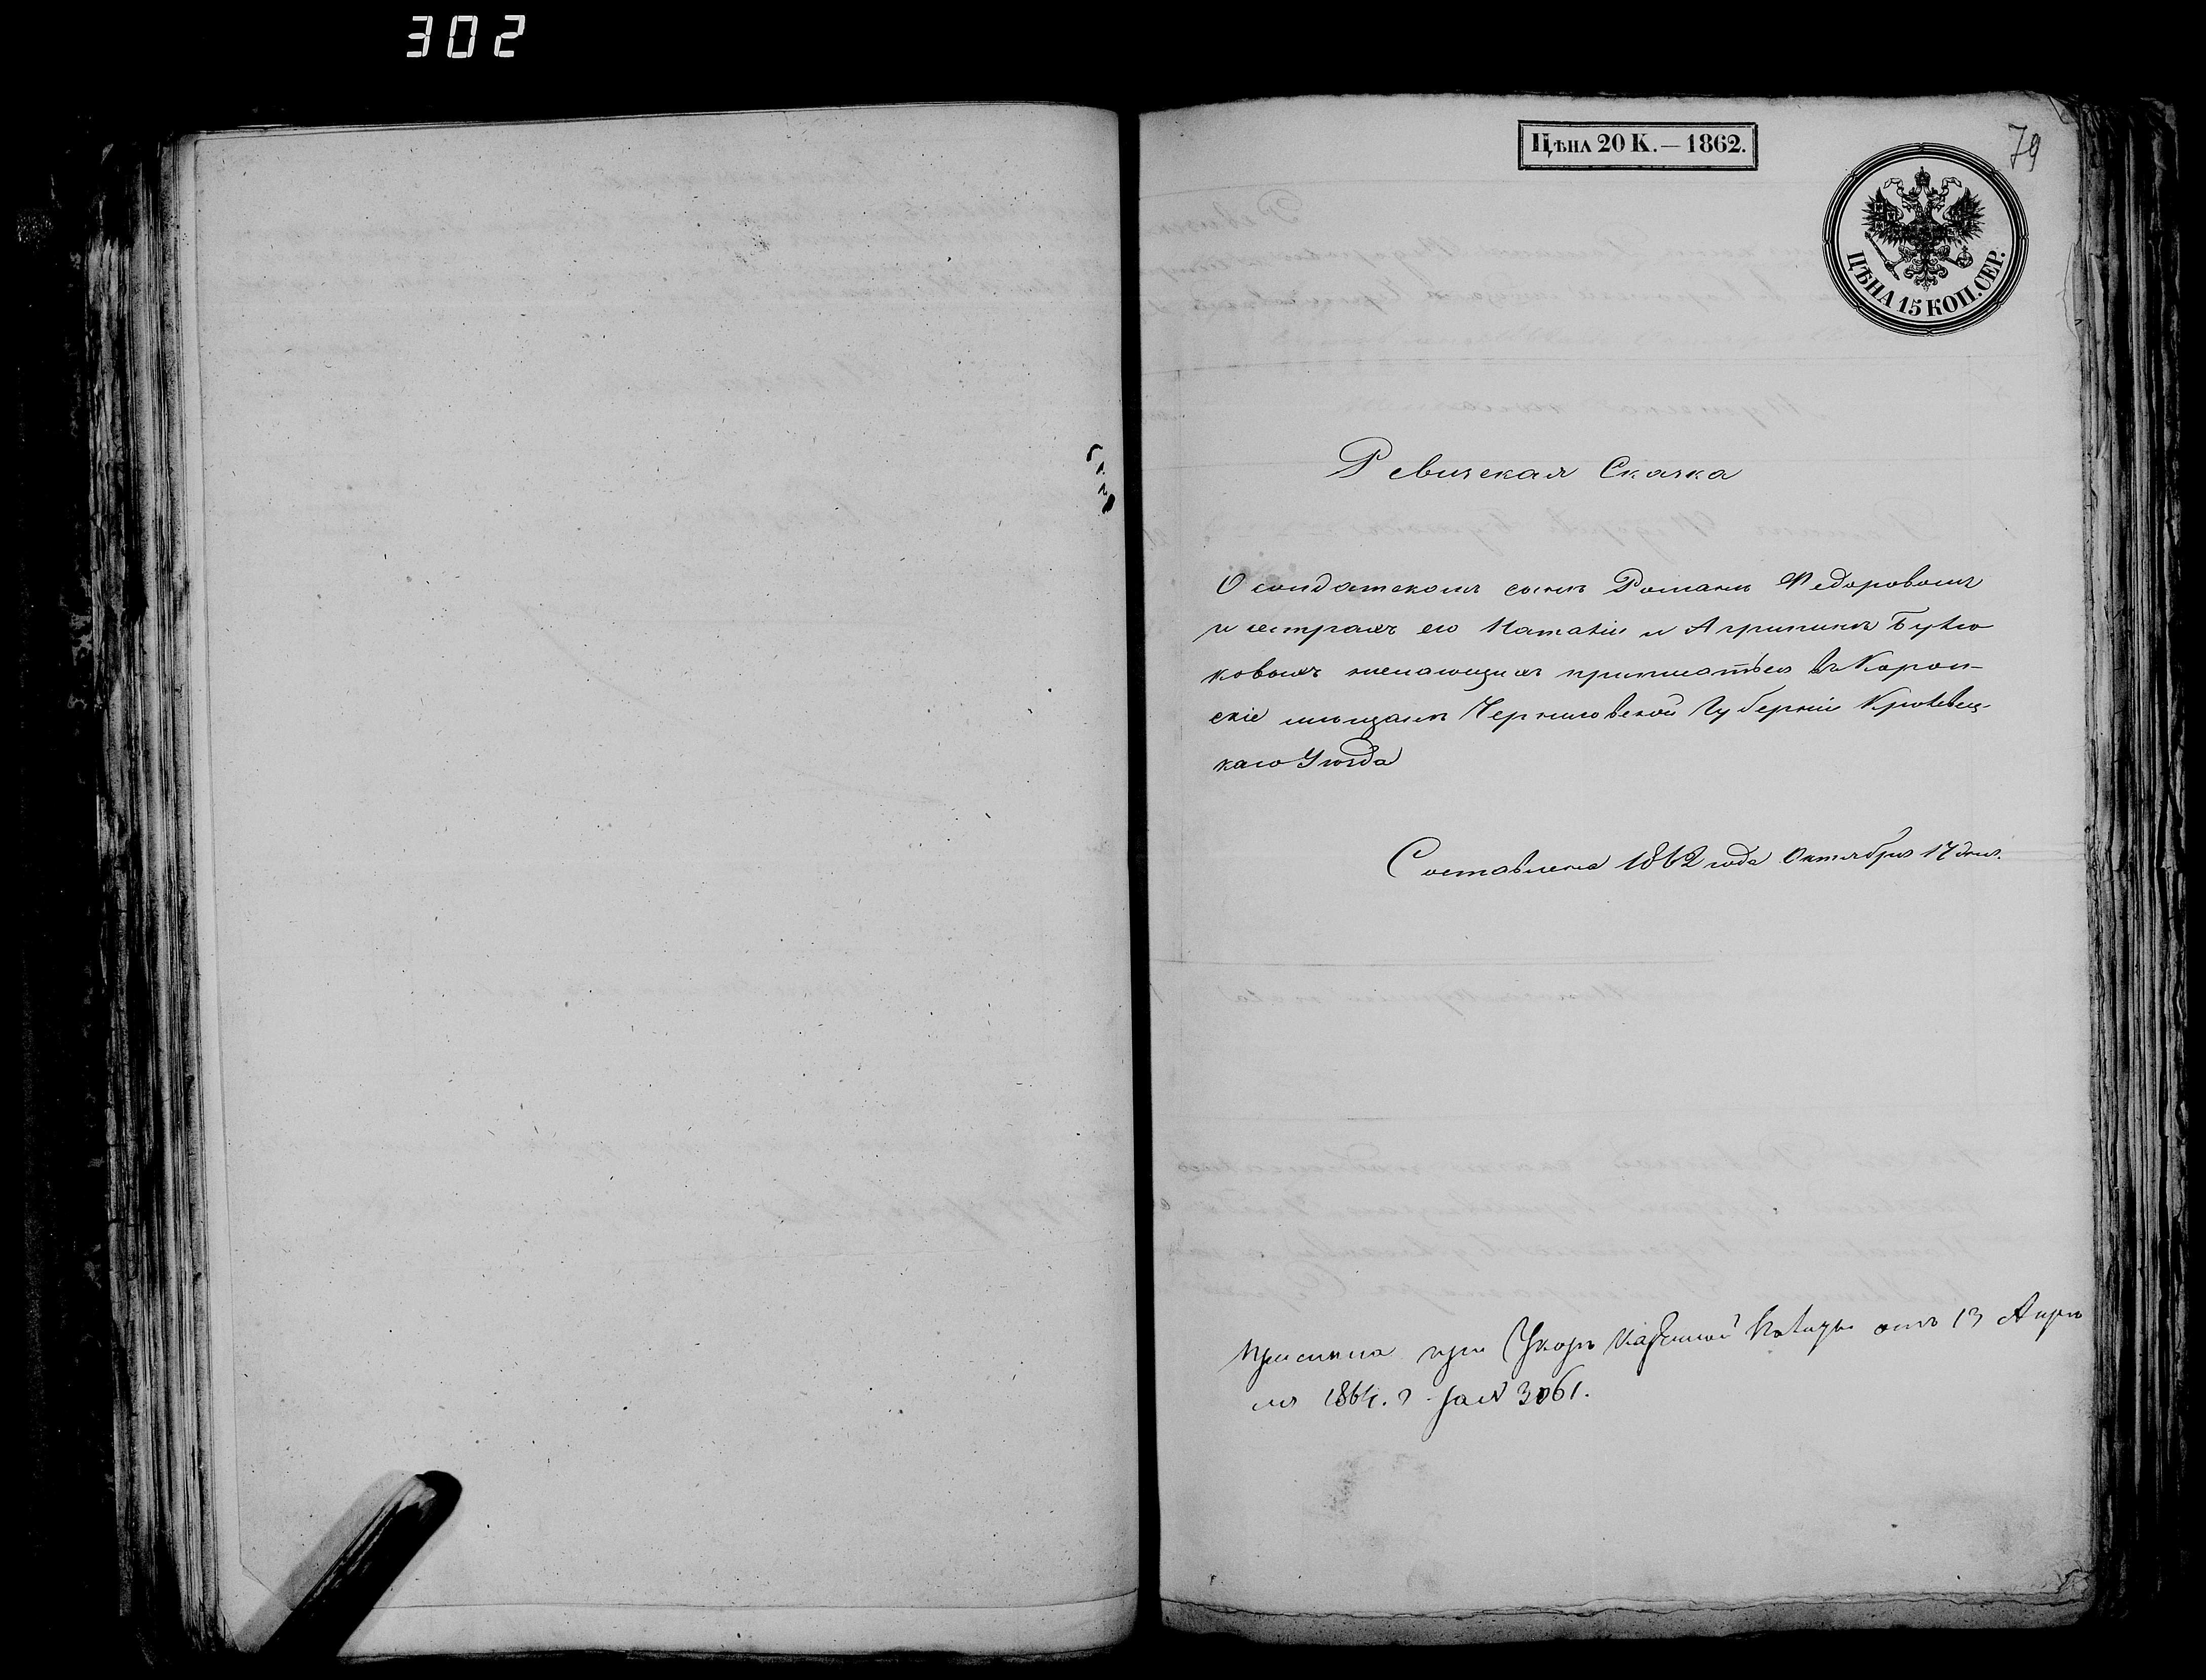 302
Цѣна 20 К.— 1862.
79
ЦѢНА 15 КОП. СЕР.
Ревизская Сказка
О солдатскомъ сынѣ Романѣ Федоровомъ
и сестрахъ его Наталіи и Агрипинѣ
желающихъ приписаться въ Короп-
скіе мѣщане Черниговской Губерніи Кролевец-
каго Уѣзда
Составлена 1862 года Октября 17 дня.
Прислана при Казенной Палаты отъ 13 Апрѣ
ля 1864. г. за № 3061.